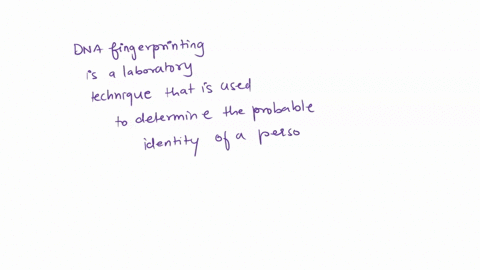 DNA fingerprinting
is a laboratory
technique that is used
to determine the probable
identity of a perso